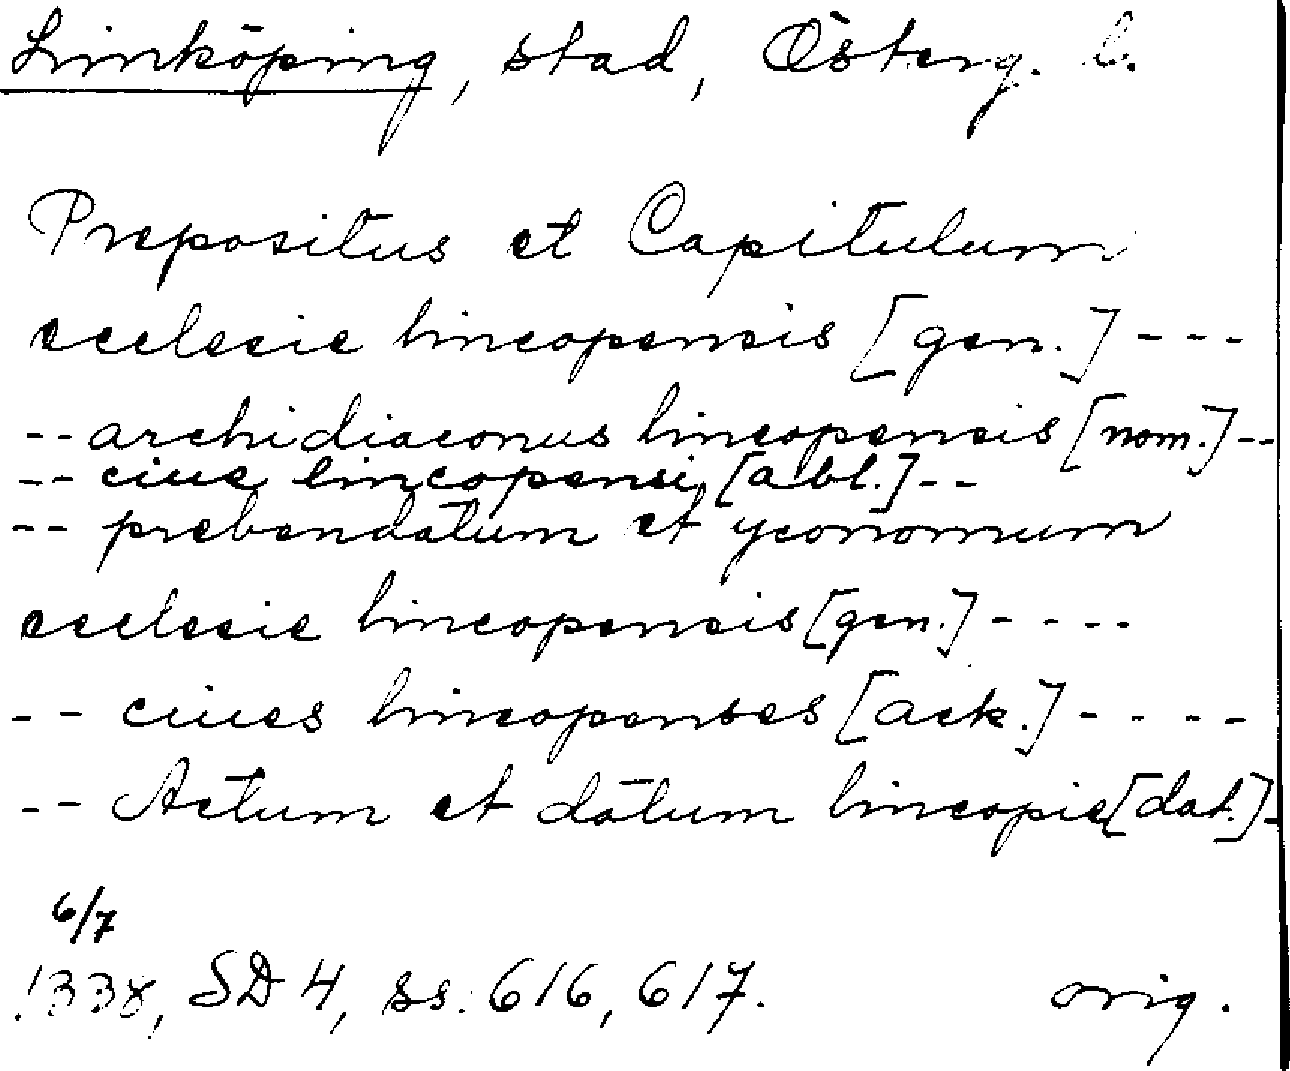 Linköping, stad, Österg. l.
Prepositus et Capitulum
ecclesie lincopensis [gen.] ---
-- archidiaconus lincopensis [nom.] --
-- ciue lincopensi [abl.] --
-- prebendatum et yconomum
ecclesie lincopensis [gen.] ----
-- ciues lincopenses [ack.] ----
-- Actum et datum lincopie [dat.] -
6/7
1338, SD 4, ss. 616, 617. orig.